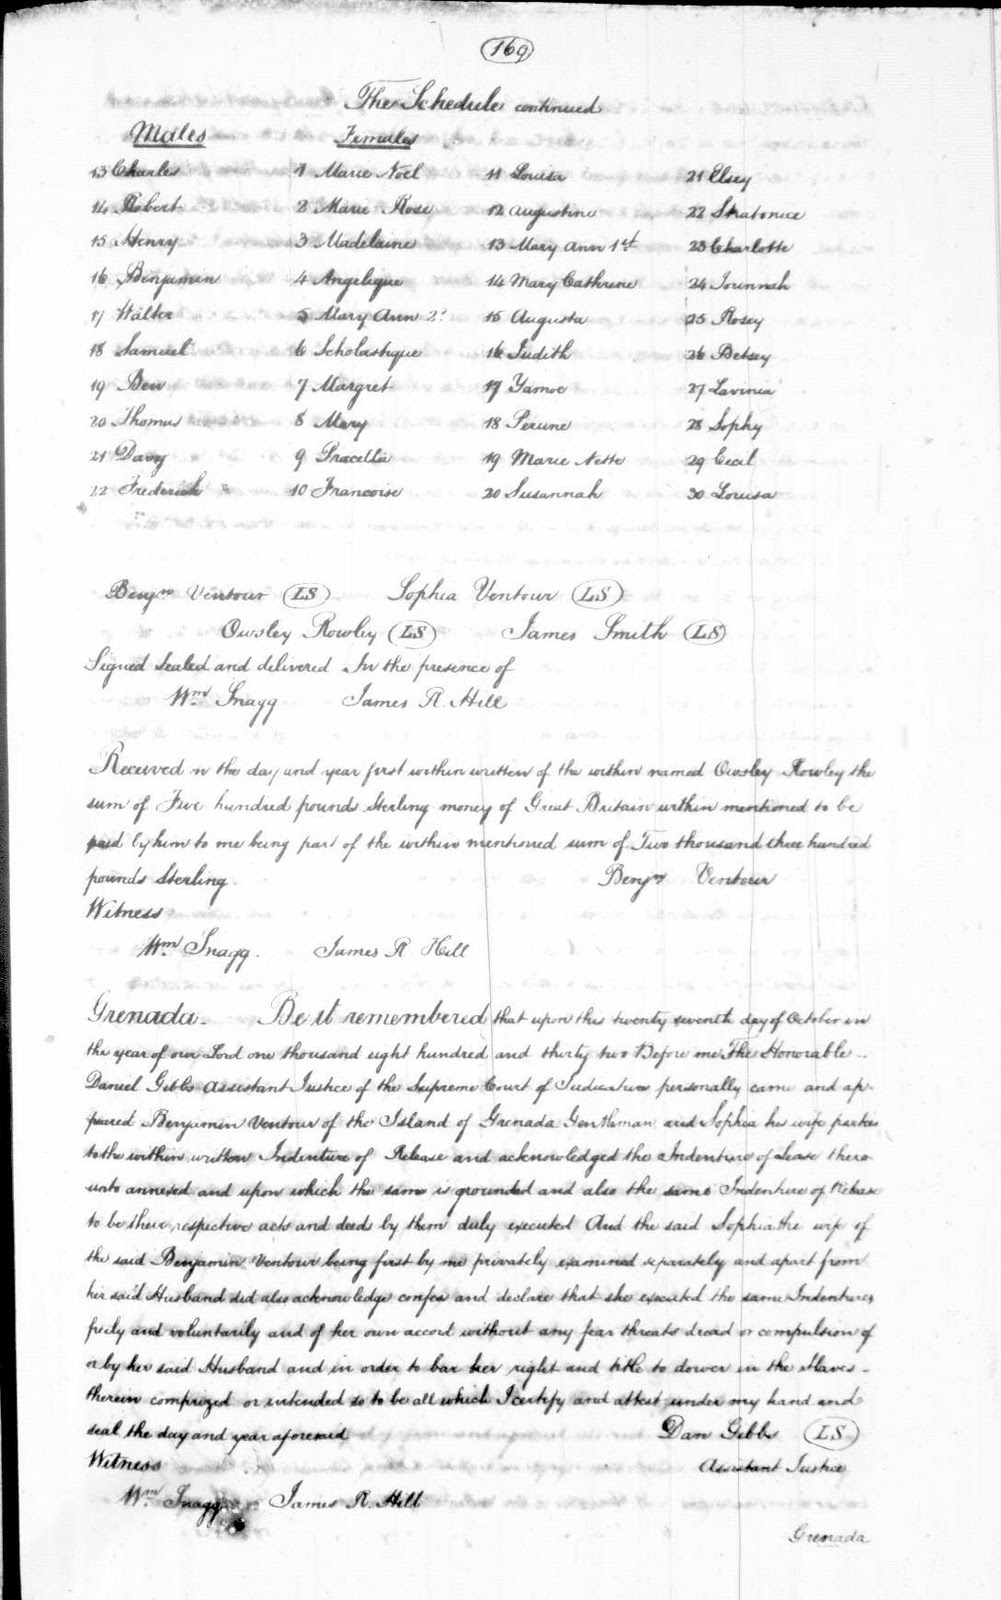 169
The Schedule continued
Males Females
13 Charles 1 Marie Noel 11 Louisa 21 Elsey
14 Robert 2 Marie Rose 12 Augustine 22 Stratonice
15 Henry 3 Madelaine 13 Mary Ann 1st 23 Charlotte
16 Benjamin 4 Angelique 14 Mary Cathrine 24
17 Walter 5 Mary Ann 2d 15 Augusta 25 Rosey
18 Samuel 6 Scholastique 16 Judith 26 Betsey
19 Ben 7 Margret 17 28 27 Lavinia
20 Thomas 8 Mary 18 Perine 28 Sophy
21 Davy 9 19 Marie Nette 29 Cecil
22 Frederick 10 Francoise 20 Susannah 30 Louisa
Benjn Ventour LS Sophia Ventour LS
Owsley Rowley LS James Smith LS
Signed Sealed and delivered In the presence of
Wm Snagg James R. Hill
Received on the day and year first within written of the within named Owsley Rowley the
sum of Five hundred pounds Sterling money of Great Britain within mentioned to be
paid by him to me being part of the within mentioned sum of Two thousand three hundred
pounds Sterling. Benjn Ventour
Witness
Wm Snagg. James R Hill
Grenada. Be it remembered that upon this twenty seventh day of October in
the year of our Lord one thousand eight hundred and thirty two Before me The Honorable
Daniel Gibbs Assistant Justice of the Supreme Court of Judicature personally came and ap-
peared Benjamin Ventour of the Island of Grenada Gentleman and Sophia his wife parties
to the within written Indenture of Release and acknowledged the Indenture of Lease there
unto annexed and upon which the same is grounded and also the same Indenture of Release
to be their respective act and deed by them duly executed And the said Sophia the wife of
the said Benjamin Ventour being first by me privately examined separately and apart from
her said Husband did also acknowledge confess and declare that she executed the same Indentures
freely and voluntarily and of her own accord without any fear threats dread or compulsion of
or by her said Husband and in order to bar her right and title to dower in the Slaves
therein comprized or intended so to be all which I certify and attest under my hand and
seal the day and year aforesaid Dan Gibbs LS
Witness Assistant Justice
Wm Snagg James R. Hill
Grenada